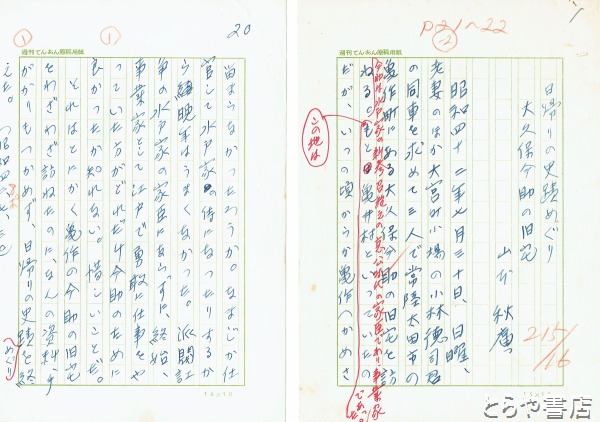 P21〜22
-2
日帰りの史蹟めぐり
大久保今助の旧宅
山本秋廣
昭和四十二年七月三十日、日曜、
老妻のほか大宮町小場の小林徳司君
の同車を求めて三人で常陸太田市の
亀作町にある大久保今助の旧宅を訪
ねる。もと亀井村といっていたの
だが、いつの頃からか亀作へかめさ
この地は
215/16
週刊てんおん原稿用紙
15×10
20
1
1
週刊てんおん原稿用紙
留まらなかったろうか。なまじか仕
官して水戸家の侍になったりするか
ら晩年はうまくなかった。派閥訌
争の水戸家の家臣にならずに、終始、
事業家として江戸で勇敢に仕事をや
っていた方がどれだけ今助のために
良かったか知れない。惜しいことだ。
それはとにかく亀作の今助の旧宅
をわざわざ訪ねたのに、なんの資料、手
がかりもつかめず、日帰りの史蹟を終
えた。
めぐり
15×10
とらや書店